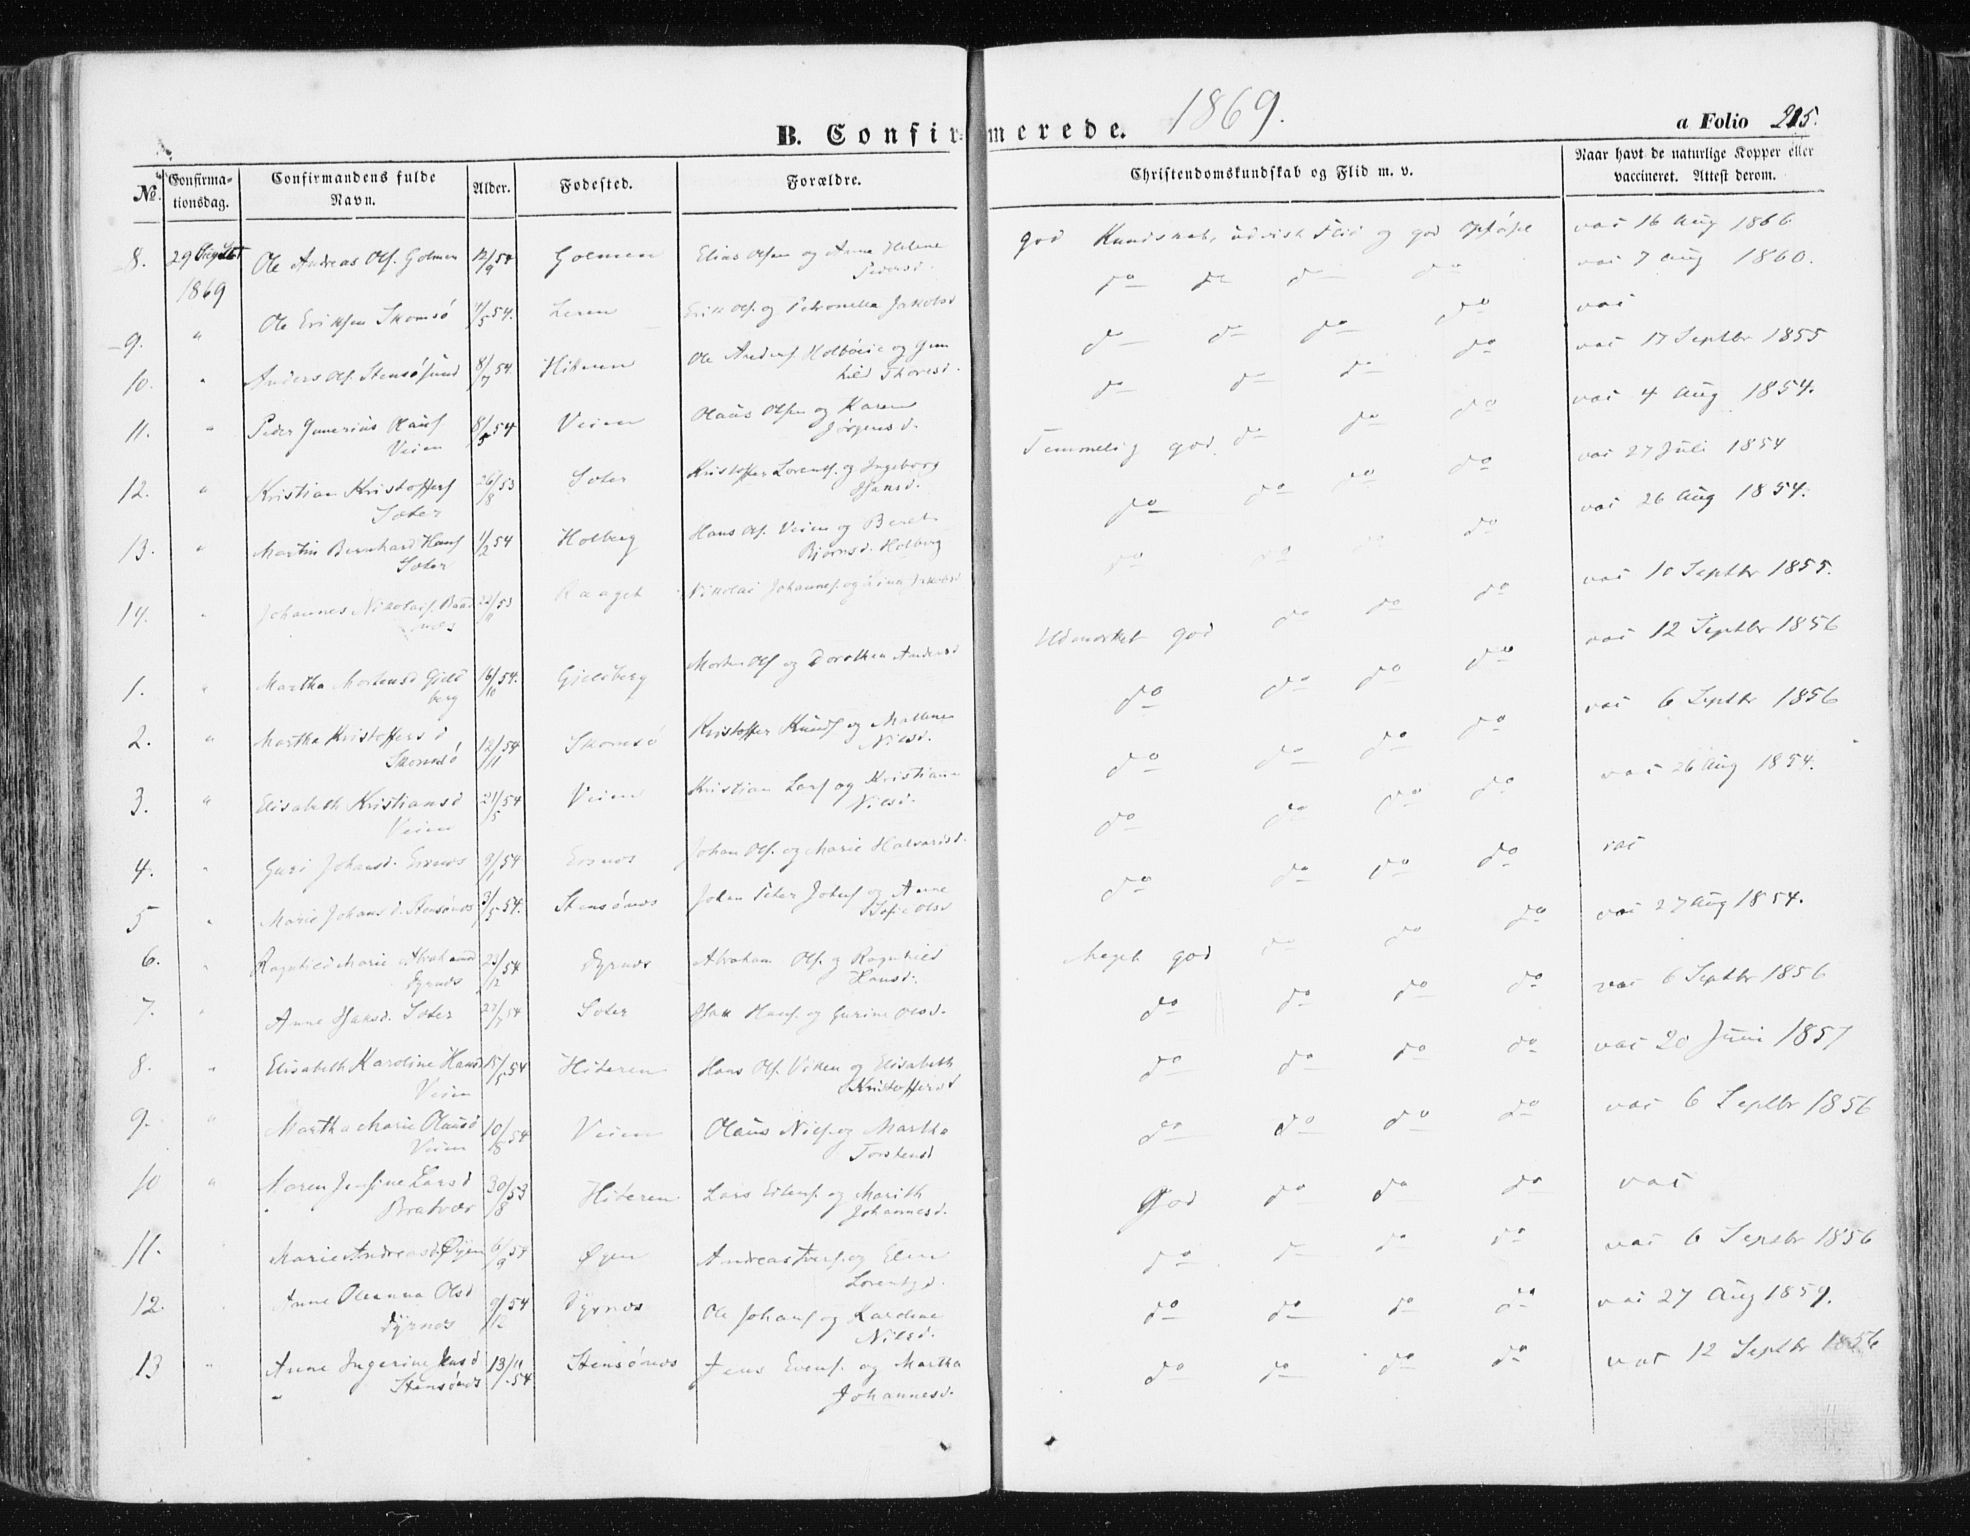 B. Confirmerede. 1869. a Folio 215.
No. Confirmationsdag. Confirmandens fulde Navn. Alder. Fødested. Forældre. Christendomskundskab og Flid m. v. Naar havt de naturlige Kopper eller vaccineret. Attest derom.
8. 29 August 1869 Ole Andreas Ols. Golmen 12/9 54 Golmen Elias Olsen og Anne Helene Pedersd. god Kundskab, udvist Flid og god Opførs. vac 16 Aug 1866
9. " Ole Eriksen Skomsö 7/5 54. Leren Erik Ols. og Petronella Jakobsd do do do do vac 7 Aug 1860.
10. " Anders Ols. Stensösund 8/7 54. Hiteren Ole Anders. Holböie og Gunhild Thoresd. do do do do vac
11. " Peder Gunerius Olaus. Veien 8/5 54 Veien Olaus Olsen og Karen Jörgensd. do do do do vac 17 Septbr 1855
12. " Kristian Kristoffers. Soter 26/8 53 Soter Kristoffer Lorents. og Ingeborg Hansd. Temmelig god. do do do vac 4 Aug 1854.
13. " Martin Bernhard Hans. Soter 1/2 54 Holberg Hans Ols. Veien og Beret Björnsd. Holberg do do do do vac 27 Juli 1854
14. " Johannes Nikolais. 22/11 53 Raaget Nikolai Johannes. og Jakobsd do do do do vac 26 Aug 1854.
1. " Martha Mortensd Gjeldberg 16/10 54. Gjeldberg Morten Ols. og Dorothea Andersd Udmærket god do do do vac 10 Septbr 1855.
2. " Martha Kristoffersd Skomsö 12/11 54 Skomsö Kristoffer Knuds. og Mallene Nilsd. do do do do vac 12 Septbr 1856
3. " Elisabeth Kristiansd Veien 21/5 54 Veien Kristian Lars. og Kristiane Nilsd. do do do do vac 6 Septbr 1856
4. " Guri Johansd. 54 Johan Ols. og Marie Halvarsd. do do do do vac 26 Aug 1854.
5 " Marie Johansd. Stensönes 3/5 54. Stensönes Johan Peter Johns. og Anne Sofie Olsd do do do do vac
6. " Ragnhild Marie Abrahamsd Dyrnes 23/12 54 Dyrnes Abraham Ols. og Ragnhild Hansd. Meget god do do do vac 27 Aug 1854.
7. " Anne Hansd. Soter 22/7 54 Soter Hans. og Gurine Olsd. do do do do vac 6 Septbr 1856
8. " Elisabeth Karoline Hansd Veien 15/5 54 Hiteren Hans Ols. Viken og Elisabeth Kristoffersd do do do do vac 20 Juni 1857
9. " Martha Marie Olausd Veien 10/8 54 Veien Olaus Nils. og Martha Torstensd do do do do vac 6 Septbr 1856
10 " Maren Jensine Larsd Bratvær 30/8 53 Hiteren Lars og Marith Johannesd. God do do do vac
11. " Marie Andreasd. Øyen 6/9 54 Øyen Andreas Ivers. og Elen Lorentzd. do do do do vac 6 Septbr 1856
12. " Anne Oleanna Olsd Dyrnes 9/12 54 Dyrnes Ole Johans. og Karoline Nilsd. do do do do vac 27 Aug 1859.
13 " Anne Ingerine Jensd Stensönes 13/11 54 Stensönes Jens Evens. og Martha Johannesd. do do do do vac 12 Septbr 1856